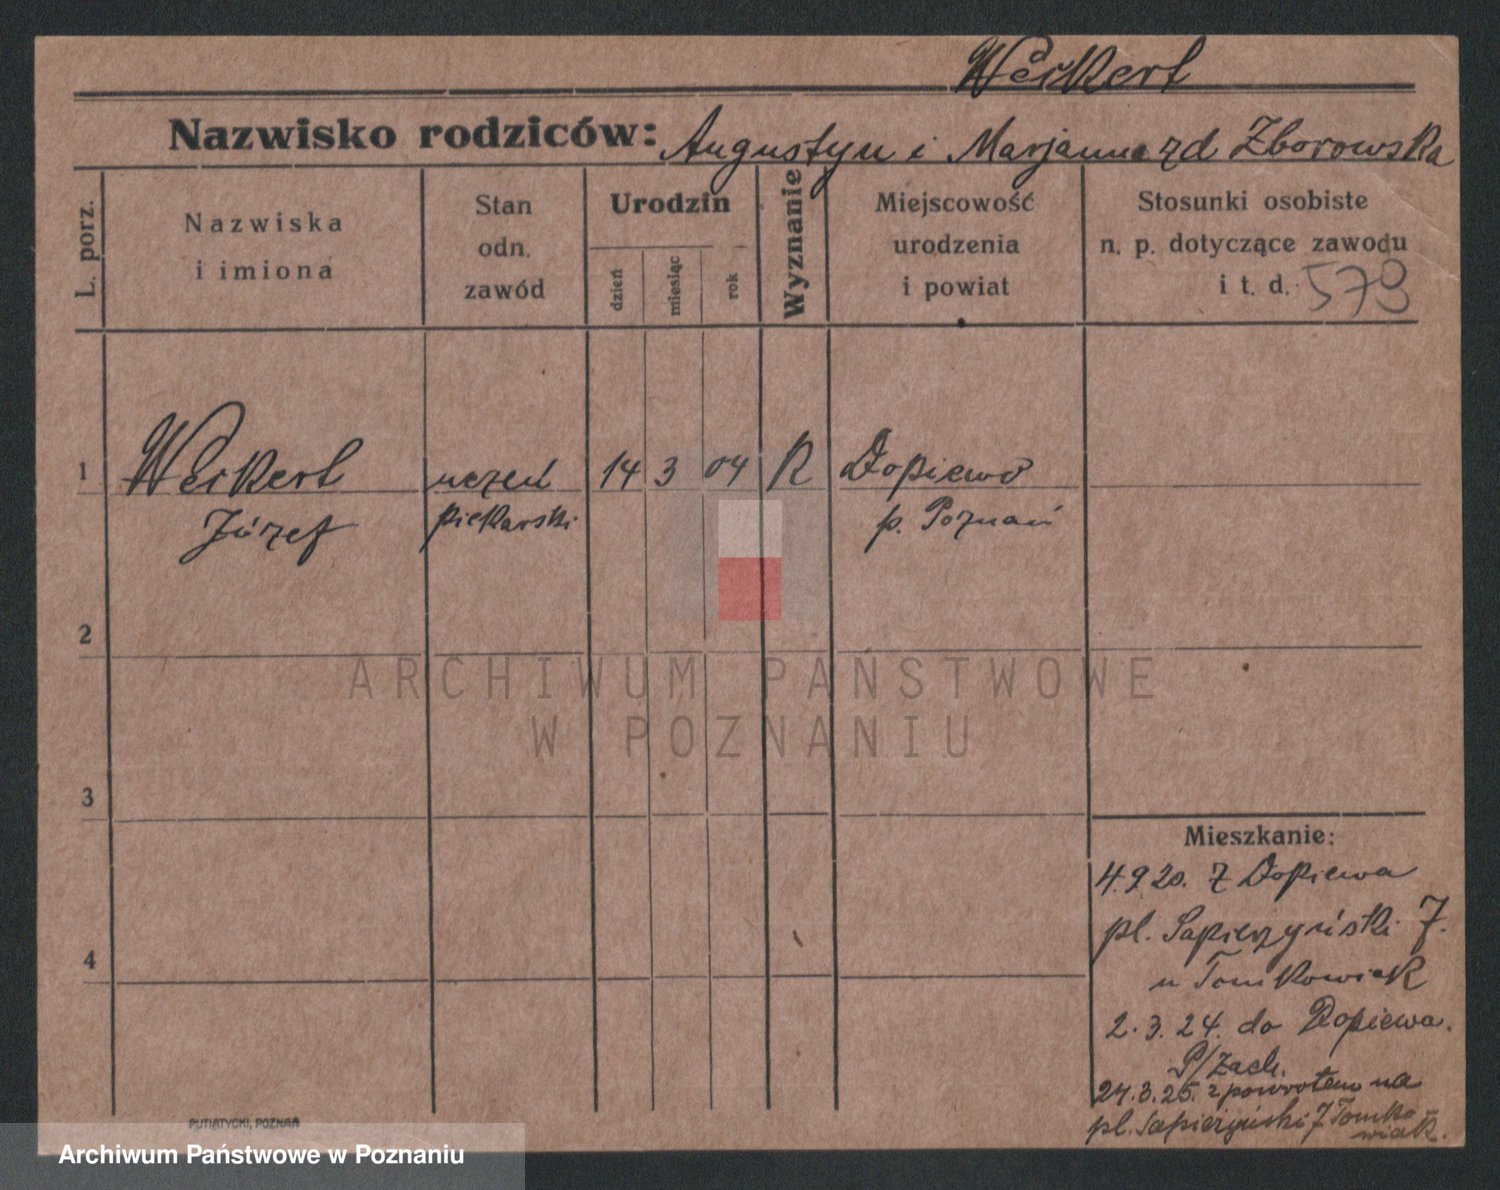 Weikert
Nazwisko rodziców: Augustyn i Marjanna zd Zborowska
L. porz.
Nazwiska
i imiona
Stan
odn.
zawód
Urodzin
dzień
miesiąc
rok
Wyznanie
Miejscowość
urodzenia
i powiat
Stosunki osobiste
n. p. dotyczące zawodu
i t. d. 578
1 Weikert uczeń 14 3 04 R Dopiewo
Józef piekarski p. Poznań
2
3
4
Mieszkanie:
4.9.20. z Dopiewa
pl. Sapieżyński 7.
u Tomkowiak
2.3.24. do Dopiewa.
P/Zach.
24.3.25. z powrotem na
pl. Sapieżyński 7 Tomko
wiak.
PUTIATYCKI, POZNAŃ
ARCHIWUM PAŃSTWOWE
W POZNANIU
Archiwum Państwowe w Poznaniu